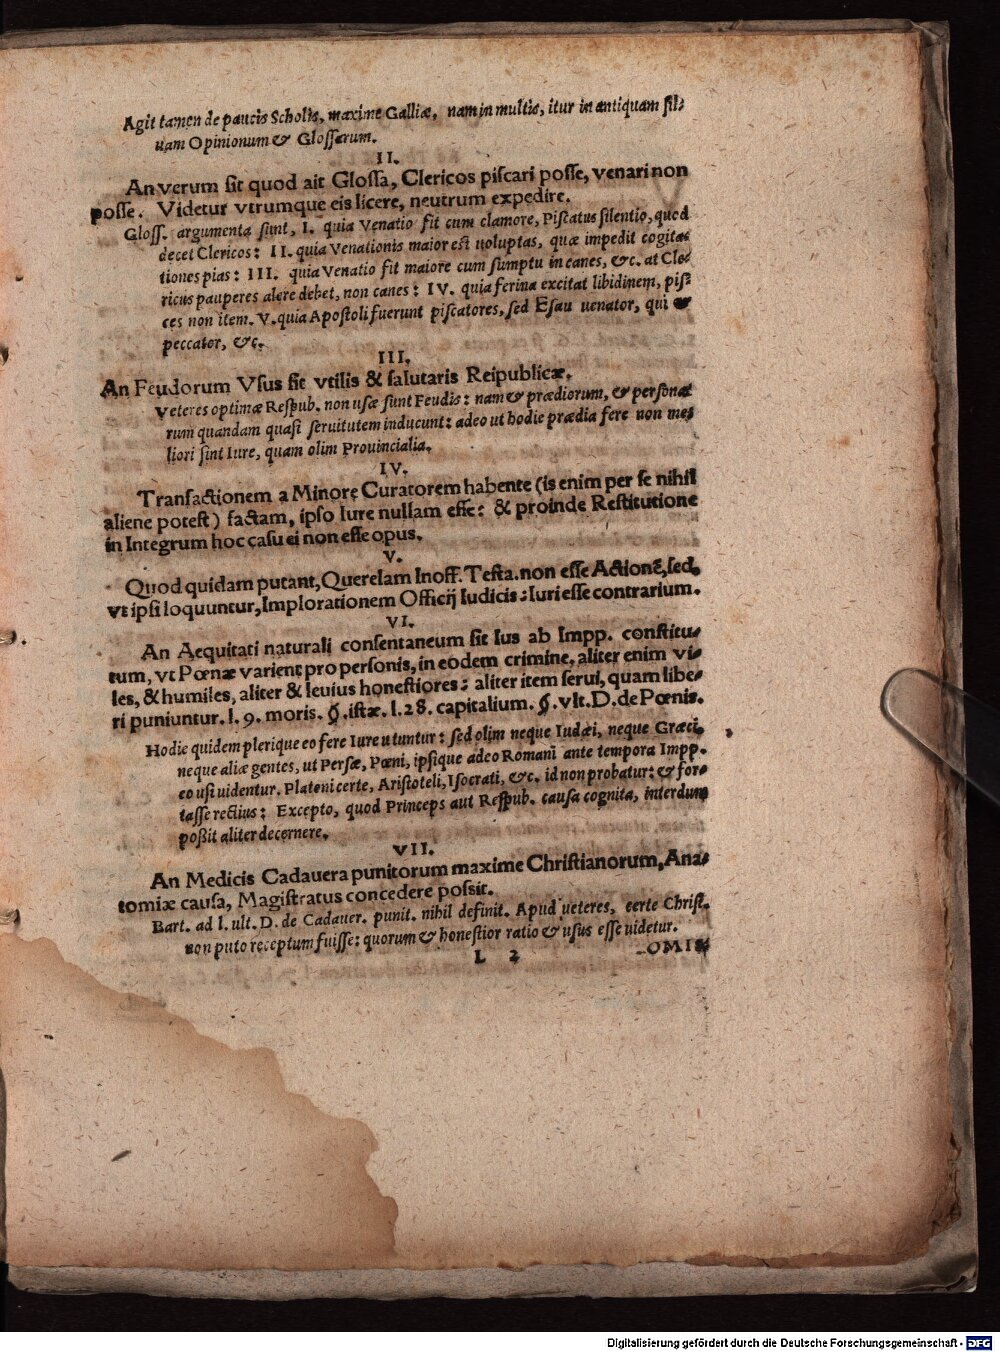 Agit tamen de paucis Scholis, maxime Galliæ, nam in multis, itur in antiquam sil⸗
uam Opinionum & Glossarum.
II.
An verum sit quod ait Glossa, Clericos piscari posse, venari non
posse. Videtur vtrumque eis licere, neutrum expedire.
Gloss. argumenta sunt, I. quia Venatio fit cum clamore, Piscatus silentio, quod
decet Clericos: II. quia Venationis maior est uoluptas, quæ impedit cogita⸗
tiones pias: III. quia Venatio fit maiore cum sumptu in canes, &c. at Cle⸗
ricus pauperes alere debet, non canes: IV. quia ferina excitat libidinem, pis⸗
ces non item. V. quia Apostoli fuerunt piscatores, sed Esau uenator, qui &
peccator, &c.
III.
An Feudorum Vsus sit vtilis & salutaris Reipublicæ.
Veteres optimæ Respub. non usæ sunt Feudis: nam & prædiorum, & persona⸗
rum quandam quasi seruitutem inducunt: adeo ut hodie prædia fere non me⸗
liori sint Iure, quam olim Prouincialia.
IV.
Transactionem a Minore Curatorem habente (is enim per se nihil
aliene potest) factam, ipso Iure nullam esse: & proinde Restitutione
in Integrum hoc casu ei non esse opus.
V.
Quod quidam putant, Querelam Inoff. Testa. non esse Actionē, sed,
vt ipsi loquuntur, Implorationem Officij Iudicis: Iuri esse contrarium.
VI.
An Aequitati naturali consentaneum sit Ius ab Impp. constitu⸗
tum, vt Pœnæ varient pro personis, in eodem crimine, aliter enim vi⸗
les, & humiles, aliter & leuius honestiores: aliter item serui, quam libe⸗
ri puniuntur. l. 9. moris. §. istæ. l. 28. capitalium. §. vlt. D. de Pœnis.
Hodie quidem plerique eo fere Iure utuntur: sed olim neque Iudæi, neque Græci,
neque aliæ gentes, ut Persæ, Pœni, ipsique adeo Romani ante tempora Impp.
eo usi uidentur. Platoni certe, Aristoteli, Isocrati, &c. id non probatur: & for⸗
tasse rectius: Excepto, quod Princeps aut Respub. causa cognita, interdum
possit aliter decernere.
VII.
An Medicis Cadauera punitorum maxime Christianorum, Ana⸗
tomiæ causa, Magistratus concedere possit.
Bart. ad l. ult. D. de Cadauer. punit. nihil definit. Apud ueteres, certe Christ.
non puto receptum fuisse: quorum & honestior ratio & usus esse uidetur.
L 2 OMIS
Digitalisierung gefördert durch die Deutsche Forschungsgemeinschaft - DFG